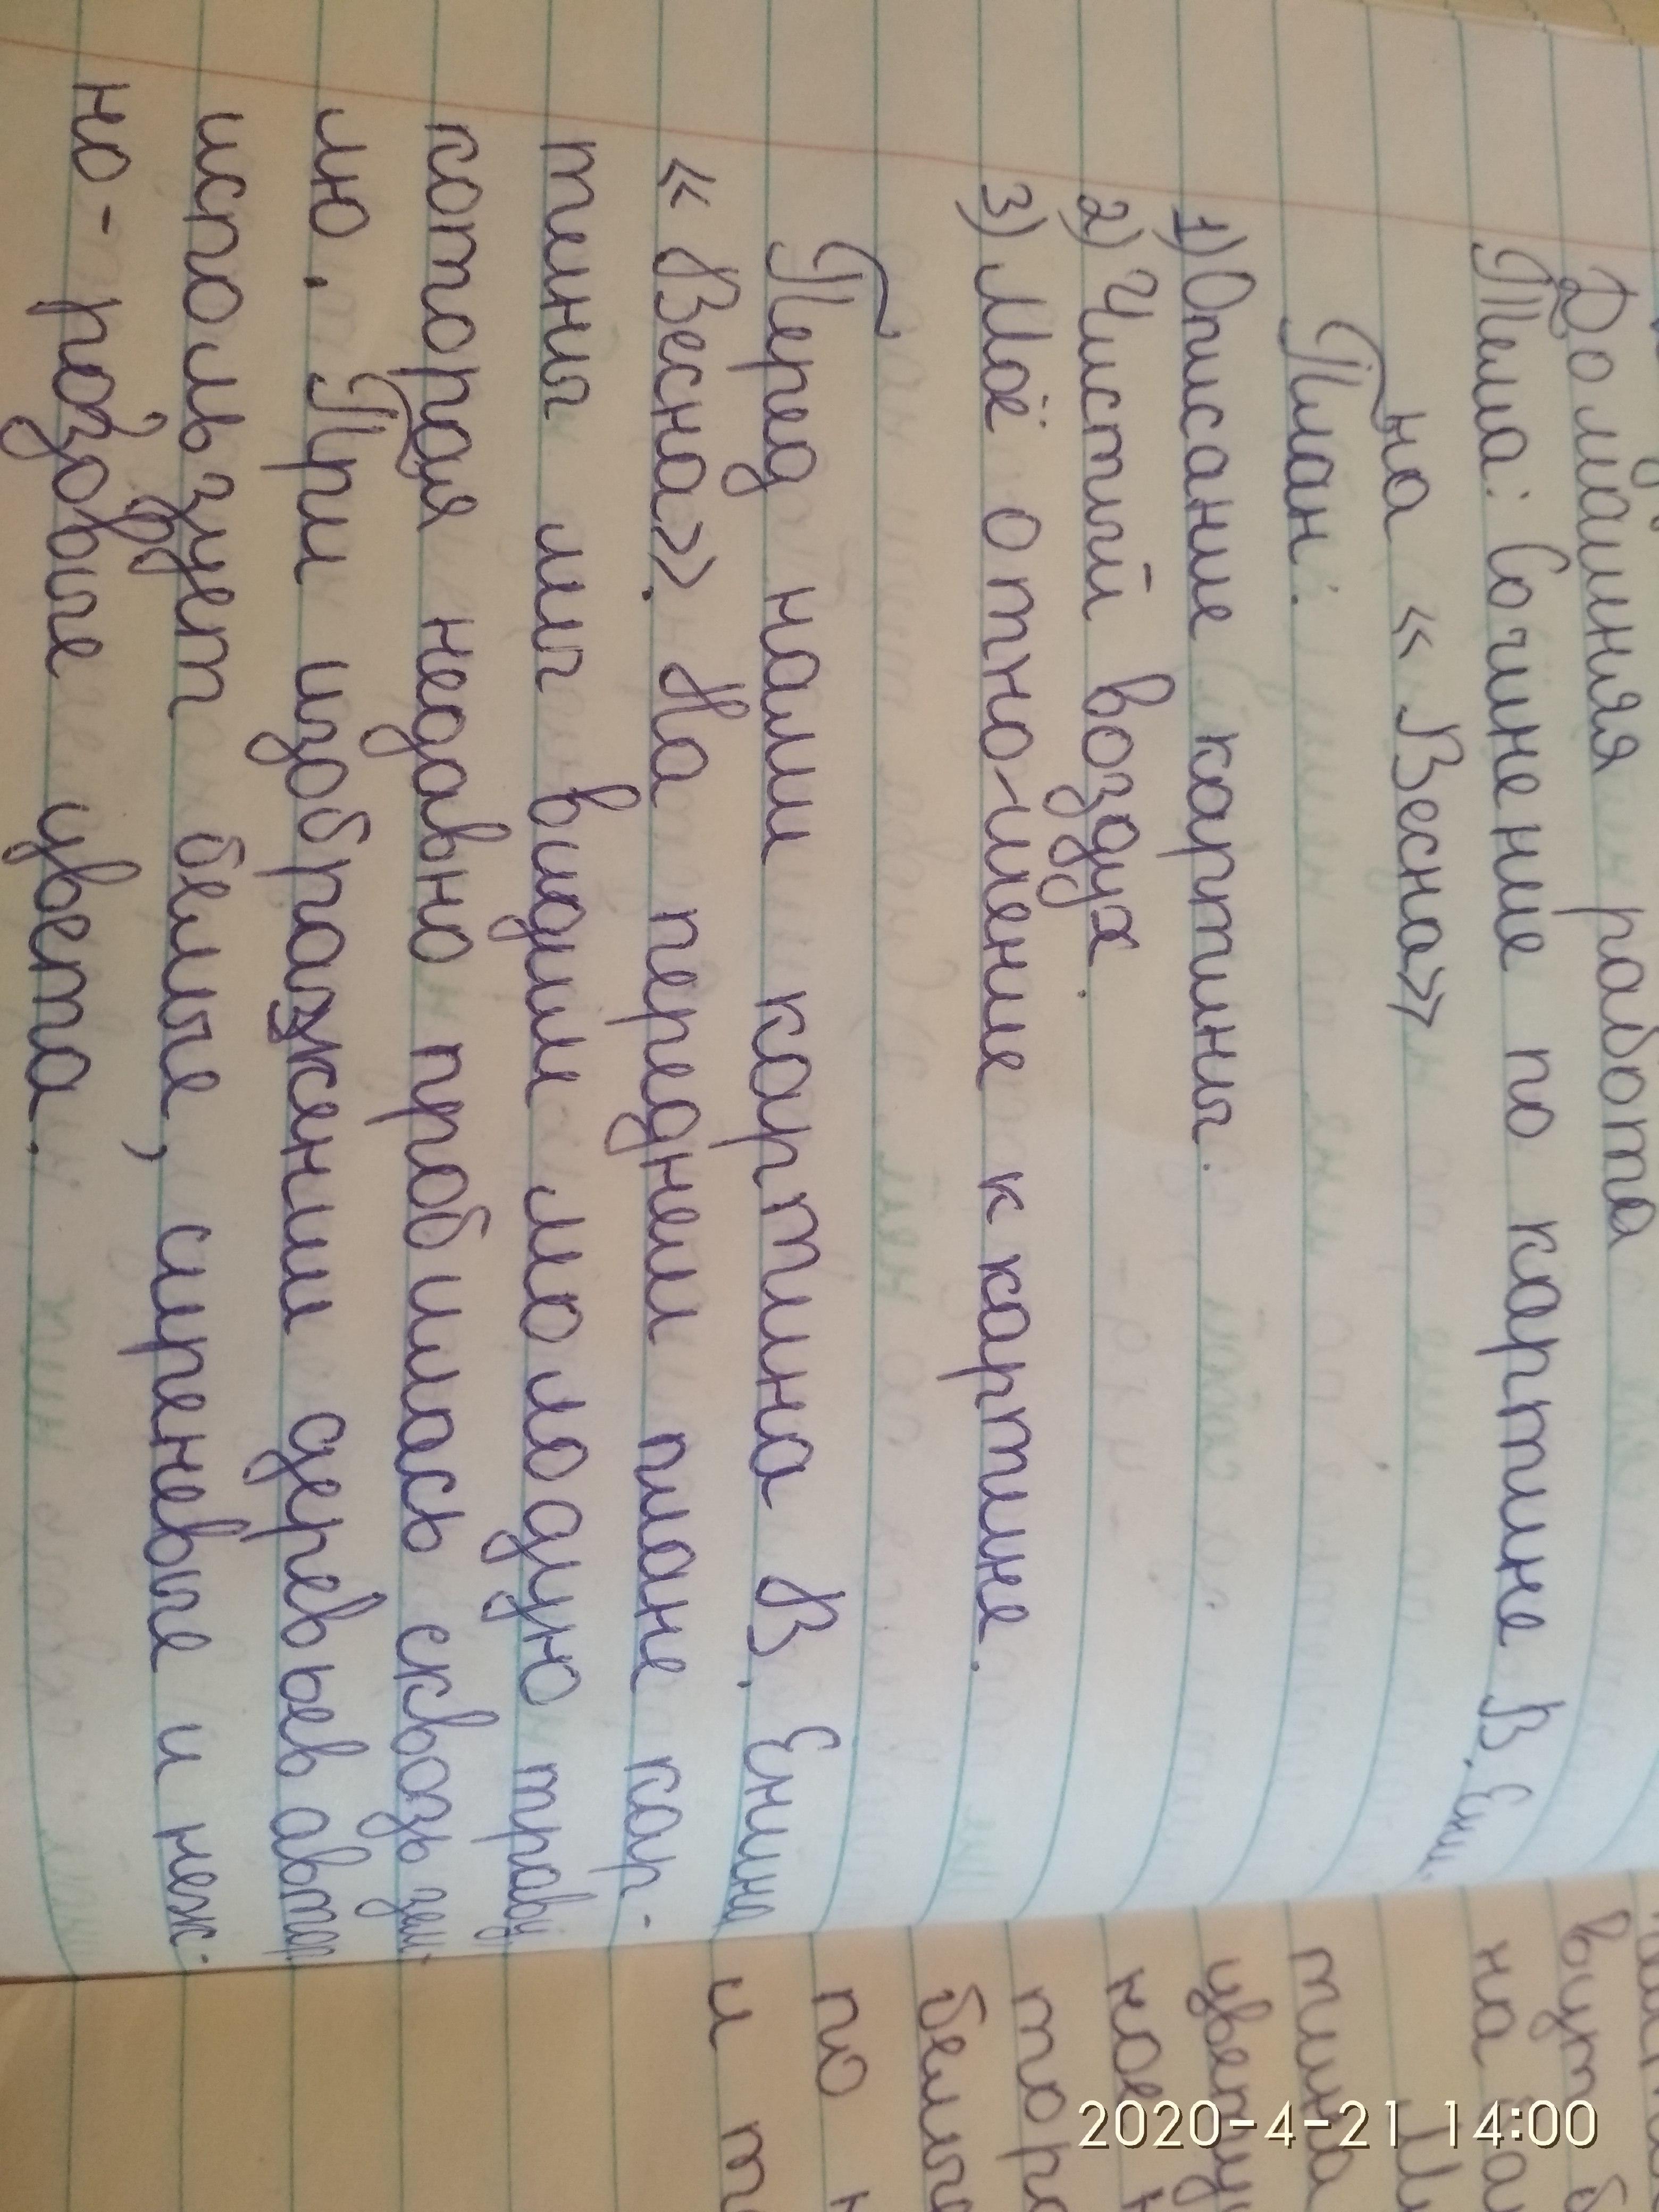 Домашняя работа
Тема: Сочинение по картине В. Ени-
на «Весна»
План:
1) Описание картины.
2) Чистый воздух.
3) Моё отно-шение к картине.
Перед нами картина В. Енина
«Весна». На переднем плане кар-
тины мы видим молодую траву
которая недавно пробилась сквозь зем-
лю. При изображении деревьев автор
использует белые, сиреневые и неж-
но-розовые цвета.
на
тина
цвету
ное
тор
белые
по
и т
2020-4-21 14:00